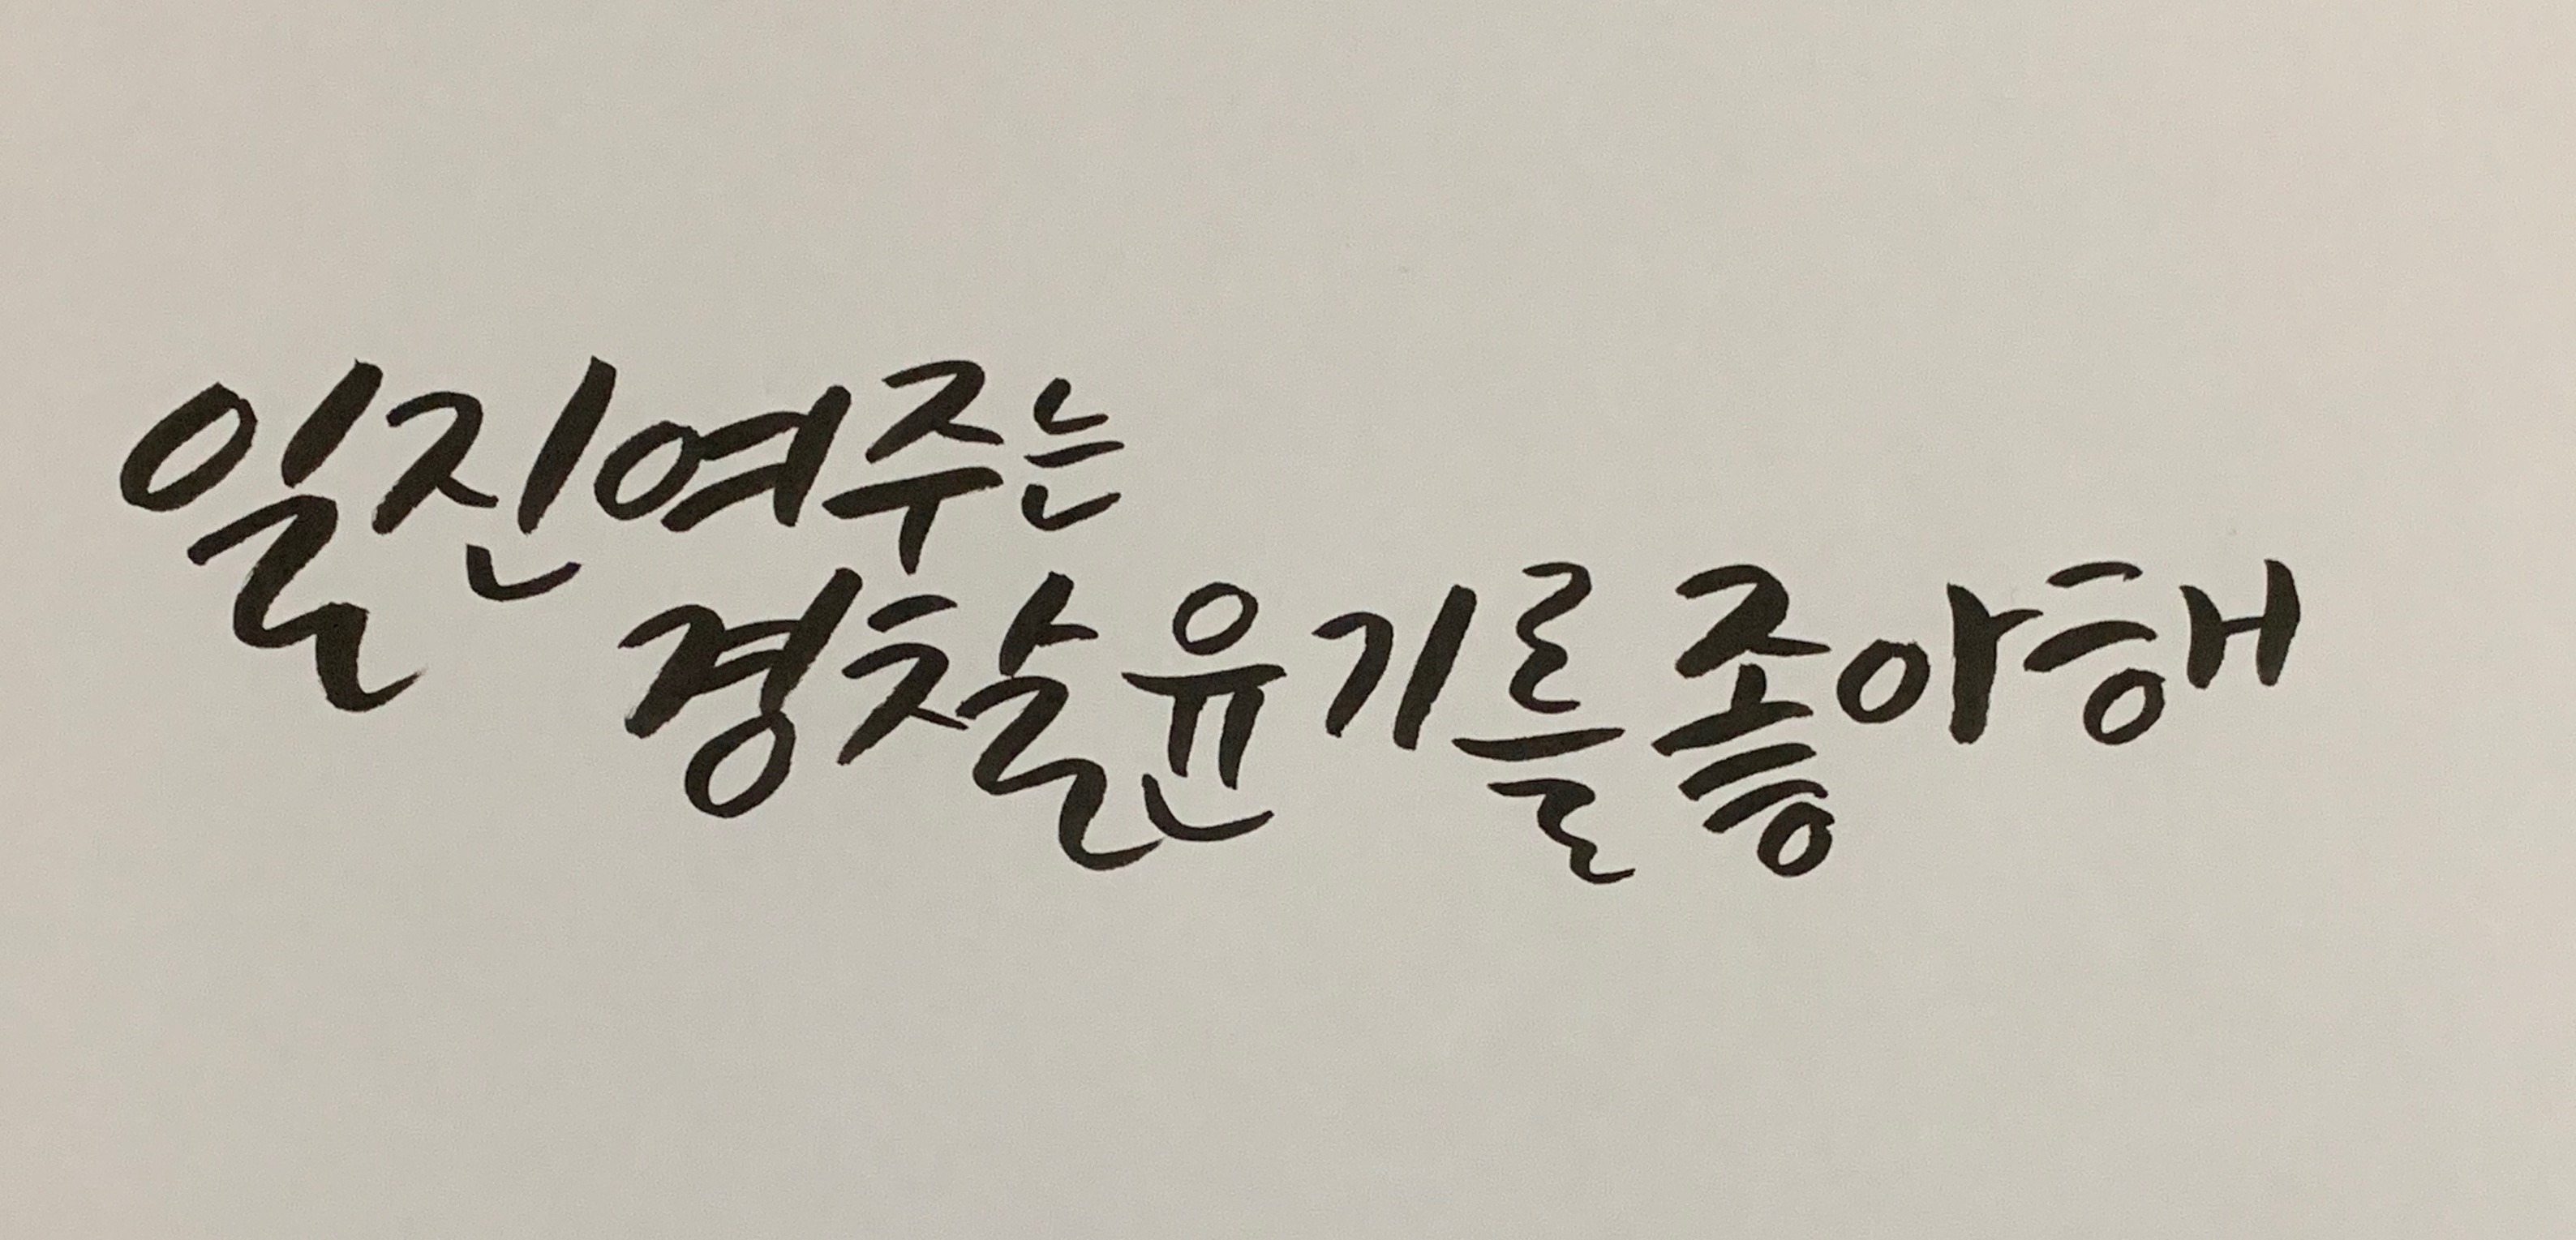 일진여주는
경찰윤기를좋아해